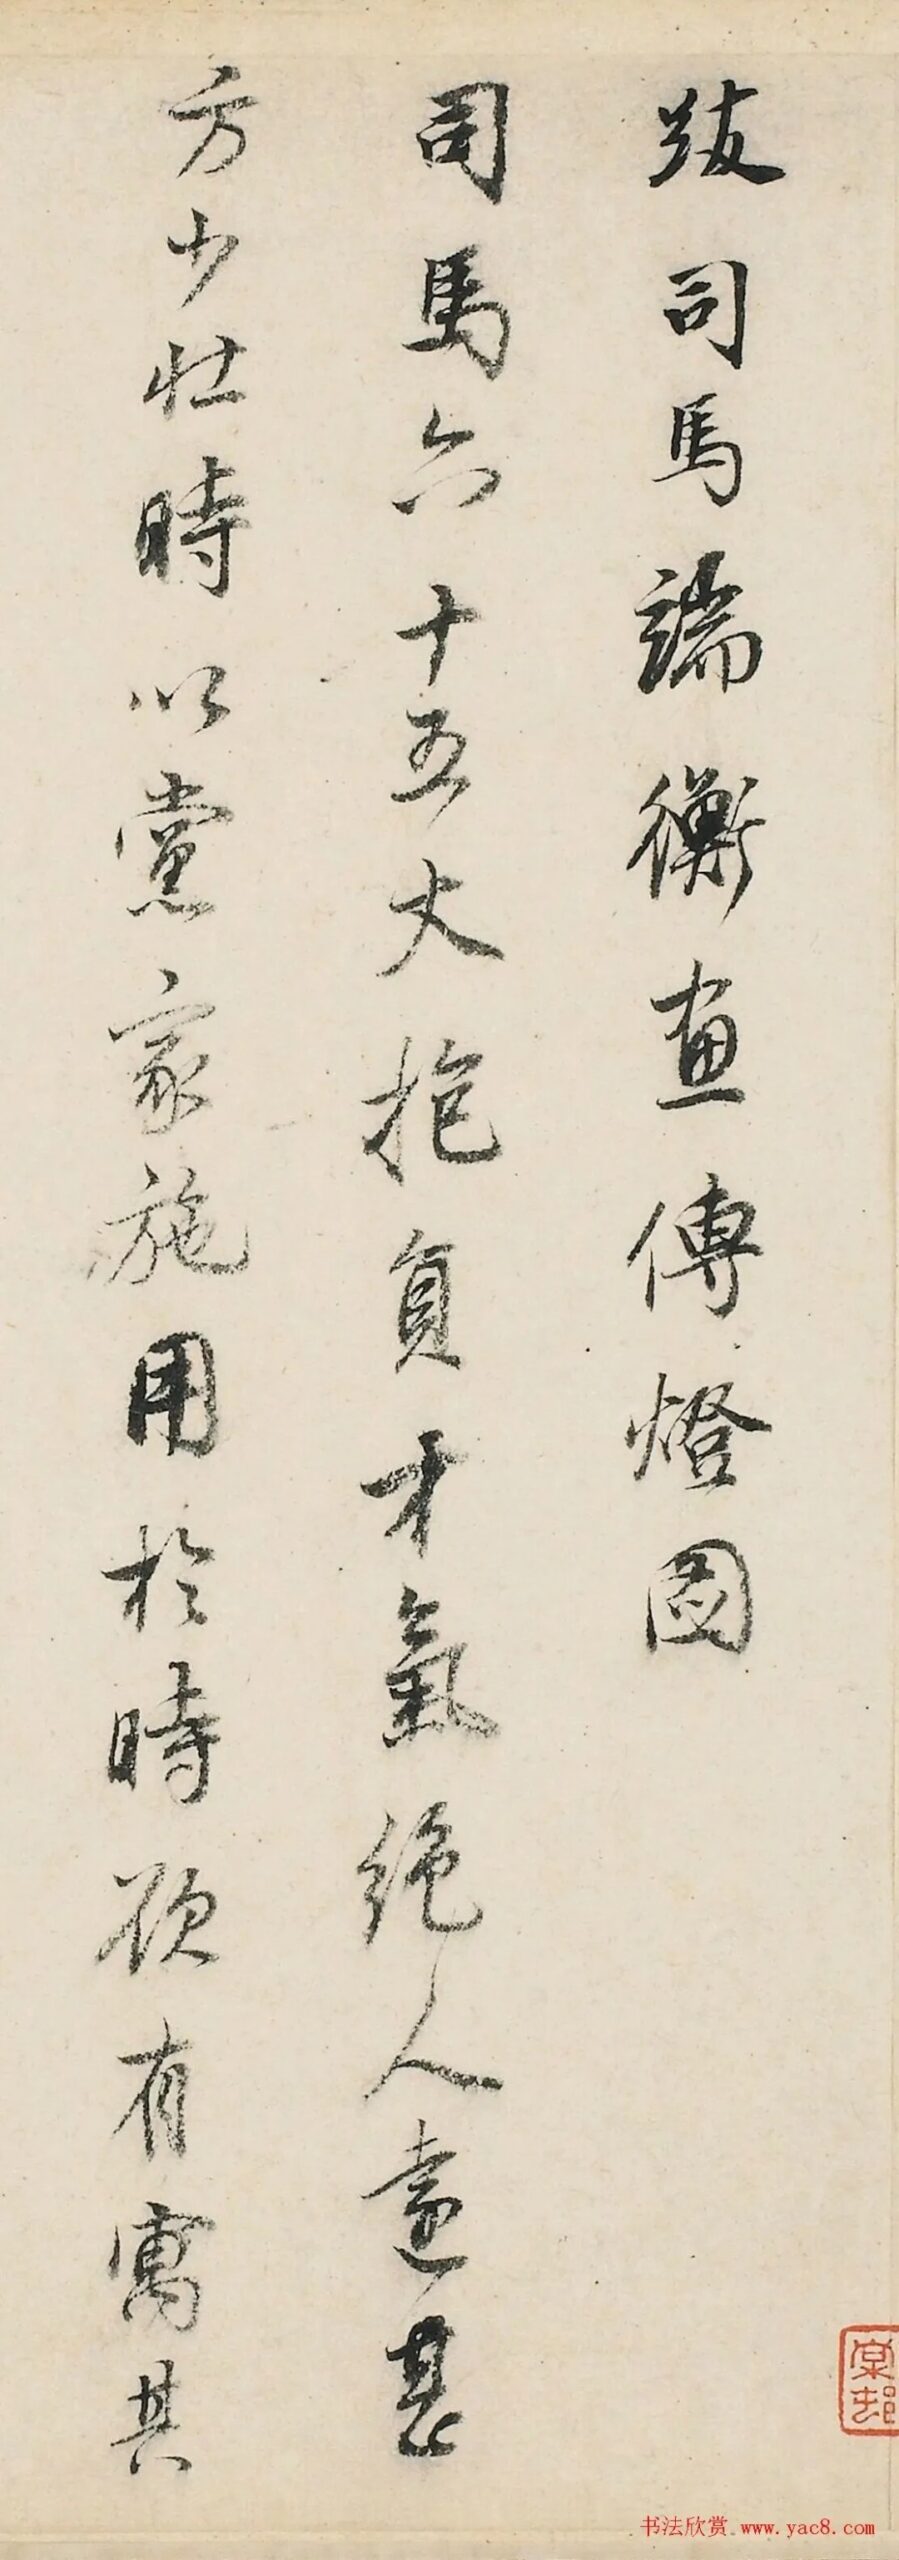 跋司馬端衡畫傳燈圖
司馬六十五丈抱負才氣絶人遠甚
方少壯時以黨家施用於時欲有寓其
棠邨
书法欣赏 www.yac8.com